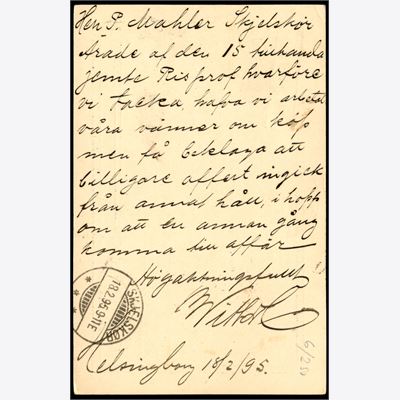 Herr P. Mahler Skjelskör
Ärade af den 15 tillhanda
jemte Risprof hvarföre
vi tacka, hafva vi arbetat
våra vänner om köp
men få beklaga att
billigare offert ingick
från annat håll, i hopp
om att en annan gång
komma till affär
Högaktningsfullt
SKJELSKØR
18.2.95.9-11E
Helsingborg 18/2/95.
6/250